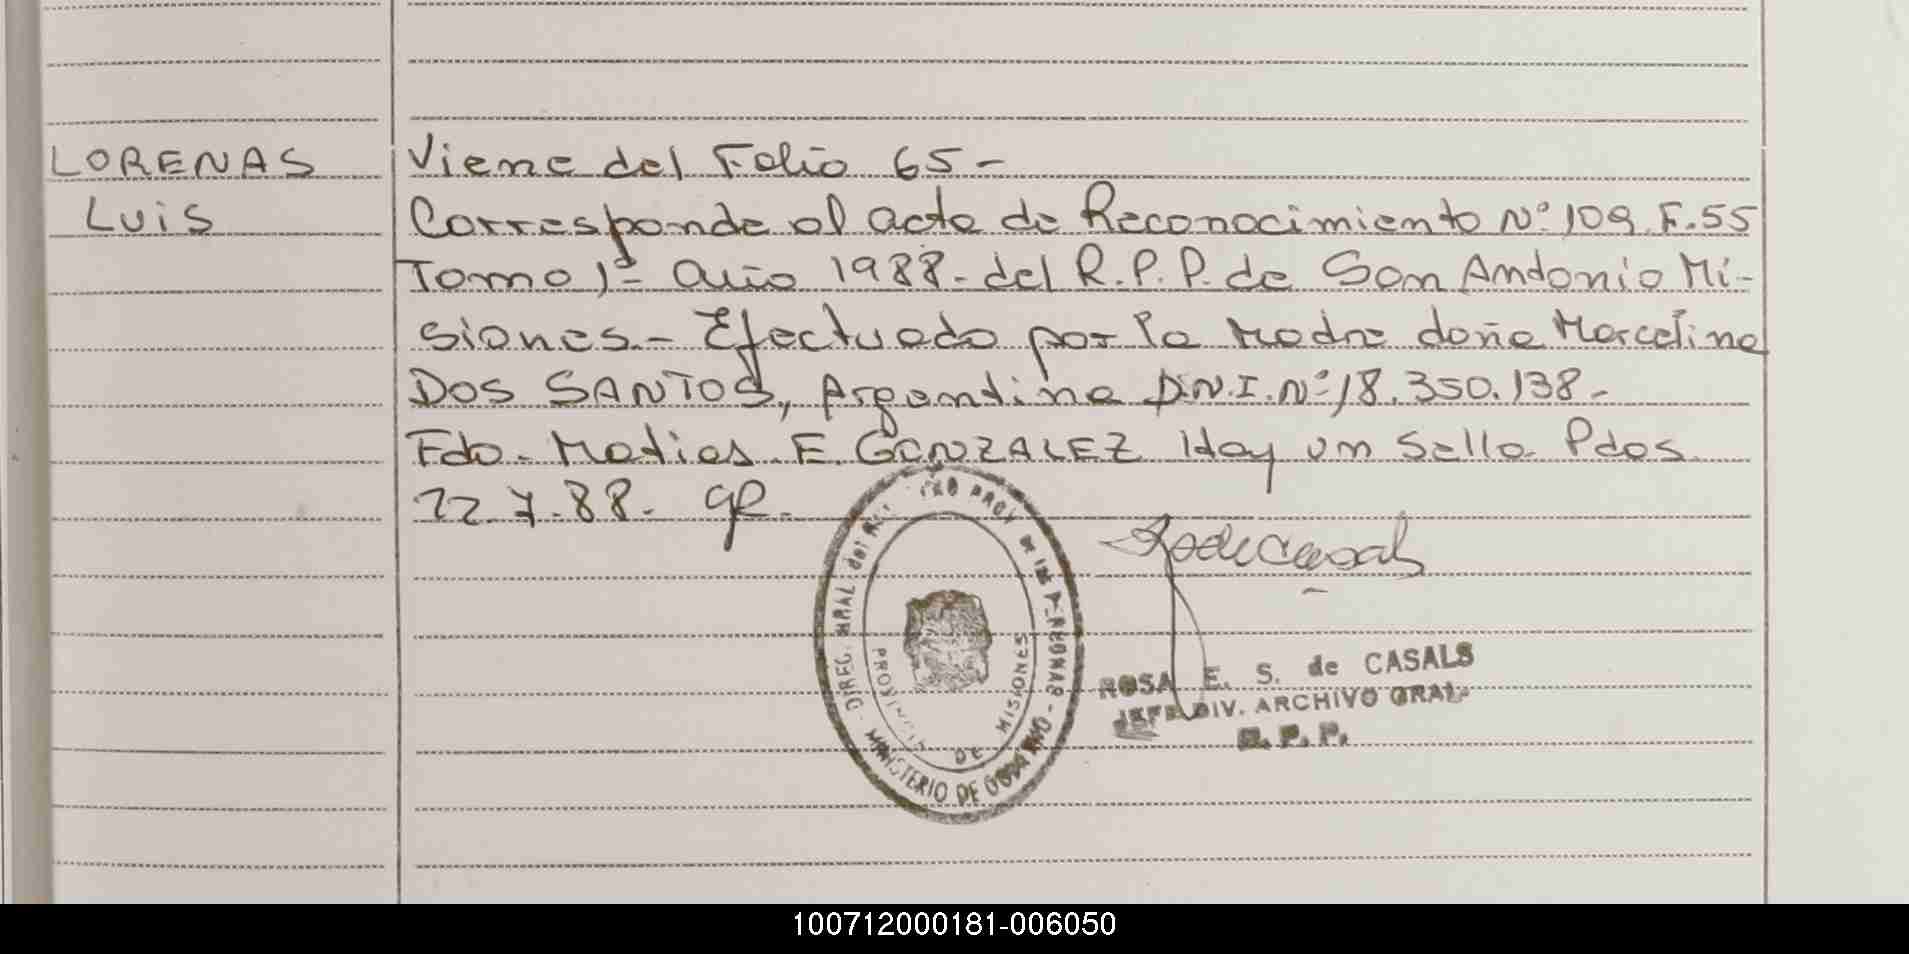 LORENAS
LUIS
Viene del Folio 65-
Corresponde al acta de Reconocimiento Nº 109. F. 55
Tomo 1º- año 1988- del R.P.P. de San Antonio Mi-
siones.- Efectuado por la Madre doña Marcelina
DOS SANTOS, Argentina D.N.I. Nº 18.350.138-
Fdo. Matias E. GONZALEZ Hay un Sello. Pdas.
22.7.88.
DIREC. GRAL del REGISTRO PROV. DE LAS PERSONAS - MINISTERIO DE GOBIERNO -
PROVINCIA DE MISIONES
ROSA E. S. de CASALS
JEFE DIV. ARCHIVO GRAL.
R. P. P.
100712000181-006050